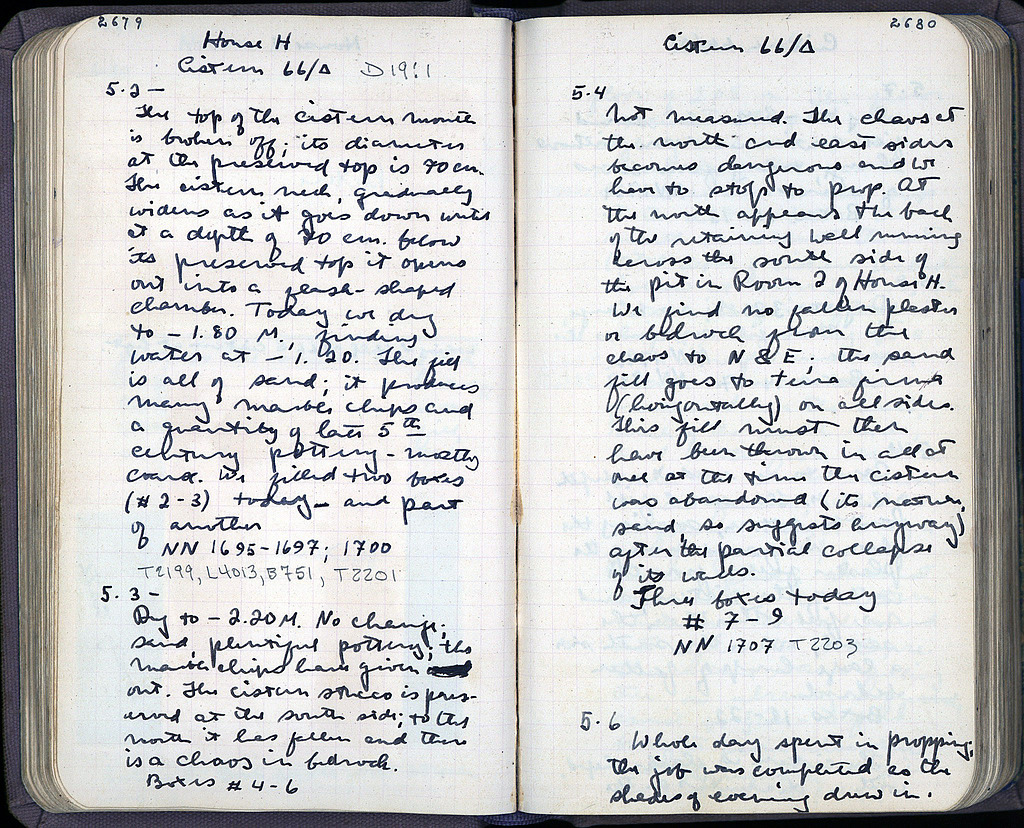 2679
House H
Cistern 66/Δ D19:1
5.2 -
The top of the cistern mouth
is broken off; its diameter
at the preserved top is 70 cm.
The cistern neck, gradually
widens as it goes down until
at a depth of 70 cm. below
its preserved top it opens
out into a flask-shaped
chamber. Today we dug
to - 1.80 M., finding
water at - 1.20. The fill
is all of sand; it produces
many marble chips and
a quantity of late 5th
century pottery - mostly
coarse. We filled two boxes
(#2-3) today - and part
of another
NN 1695-1697; 1700
T2199, L4013, B751, T2201
5.3 -
Dug to - 2.20 M. No change;
sand, plentiful pottery; the
marble chips have given
out. The cistern stucco is pres-
erved at the south side; to the
north it has fallen and there
is a chaos in bedrock.
Boxes #4-6
2680
Cistern 66/Δ
5.4
Not measured. The chaos at
the north and east sides
becomes dangerous and we
have to stop to prop. At
the north appears the back
of the retaining wall running
across the south side of
the pit in Room 2 of House H.
We find no fallen plaster
or bedrock from the
chaos to N & E; the sand
fill goes to terra firma
(horizontally) on all sides.
This fill must then
have been thrown in all at
once at the time the cistern
was abandoned (its nature,
sand, so suggests anyway)
after the partial collapse
of its walls.
Three boxes today
# 7-9
NN 1707 T2203
5.6
Whole day spent in propping,
the job was completed as the
shades of evening drew in.